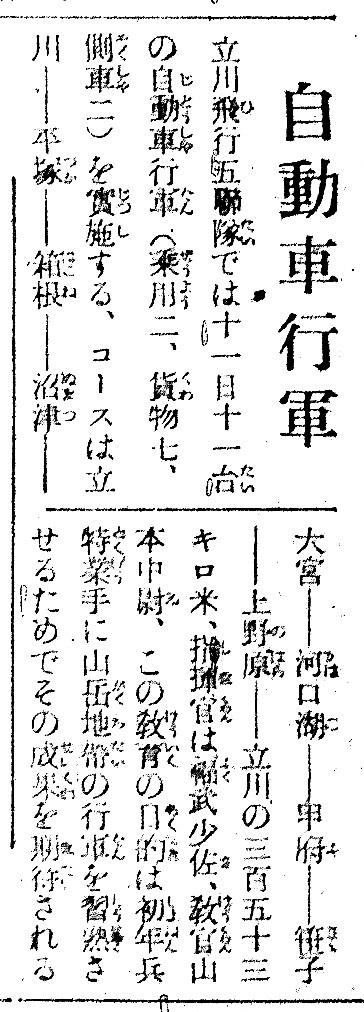 自動車行軍
立川飛行五聯隊では十一日十一台
の自動車行軍(乘用二、貨物七、
側車二)を實施する、コースは立
川――平塚――箱根――沼津――
大宮――河口湖――甲府――笹子
――上野原――立川の三百五十三
キロ米、指揮官は福武少佐、敎官山
本中尉、この敎育の目的は初年兵
特業手に山岳地帶の行軍を習熟さ
せるためでその成果を期待される